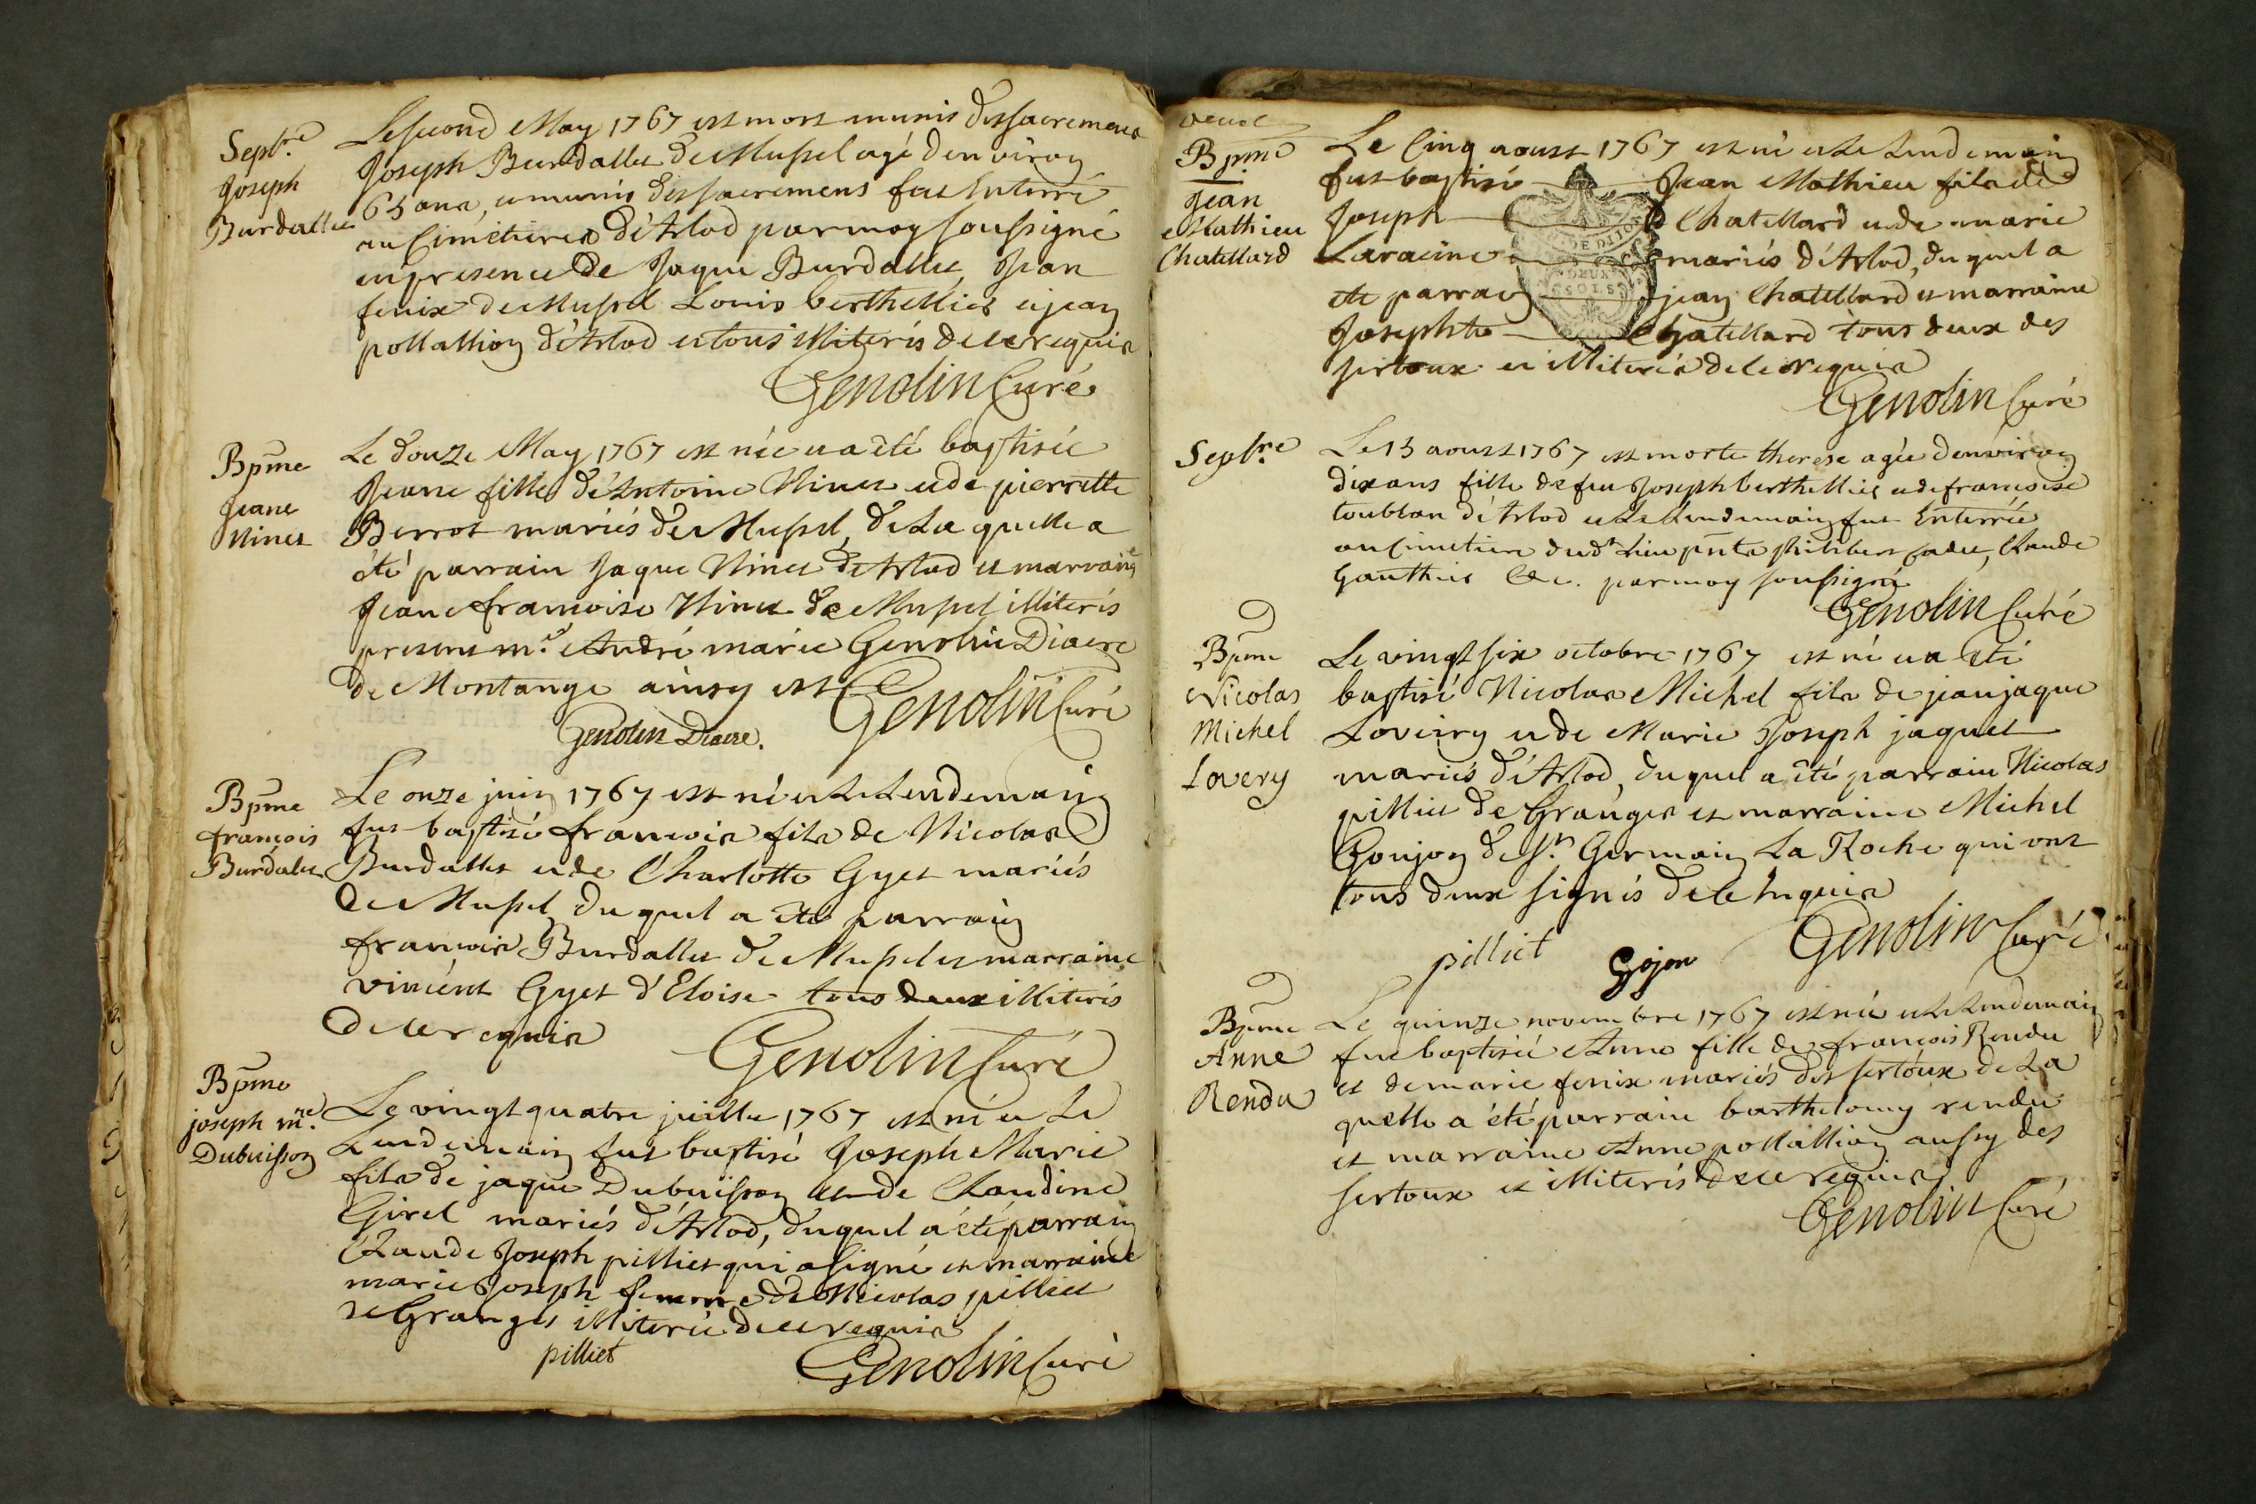 Sepbre
Joseph
Burdallet
Le second May 1767 est mort munis des sacremens
Joseph Burdallet de Mussel agé denviron
65 ans, et munis des sacremens fut Enterré
au Cimetiere d'Arlod par moy soussigné
en presence de Jaque Burdallet, Jean
fenix de Mussel Louis berthellier et jean
pollallion d'Arlod et tous illiterés de ce requis
Genolin Curé
Bpme
Jeane
Ninet
Le douze May 1767 est née et a été baptisée
Jeane fille d'Antoine Ninet et de pierrette
Berrot mariés de Mussel, de La quelle a
été parrain Jaque Ninet d'Arlod et marraine
Jeane francoise Ninet de Mussel illiterés
present mre André marie Genolin Diacre
de Montange ainsy est
Genolin Curé
Genolin Diacre.
Bpme
françois
Burdalet
Le onze juin 1767 est né et Le Lendemain
fut baptisé francois fils de Nicolas
Burdallet et de Charlotte Gyet mariés
de Mussel, du quel a été parrain
francois Burdallet de Mussel et marraine
vincent Gyet d'Eloise tous deux illiterés
de ce requis
Genolin Curé
Bpme
joseph me
Dubuisson
Le vingt quatre juillet 1767 est né et Le
Lendemain fut baptisé Joseph Marie
fils de jaque Dubuisson et de Claudine
Girel mariés d'Arlod, duquel a été parrain
Claude Joseph pilliet qui a signé et marraine
marie Joseph femme de Nicolas pilliet
de Granges illiterée de ce requis
pilliet
Genolin Curé
Bpme
Jean
Mathieu
Chatellard
Le Cinq aoust 1767 est né et Le Lendemain
fut baptisé Jean Mathieu fils de
Joseph Chatellard et de marie
Laracine mariés d'Arlod, du quel a
été parrain jean Chatellard et marraine
Josephte Chatellard tous deux des
sertoux et illiterés de ce requis
DE DIJON
DEUX
SOLS
Genolin Curé
Sepbre
Le 13 aoust 1767 est morte therese agée denviron
dix ans fille de feu Joseph berthellier et de francoise
toublan d'Arlod et Le Lendemain fut Enterrée
au Cimetiere dudt Lieu pnts philibert cadet, Claude
Gauthier &c. par moy soussigné
Genolin Curé
Bpme
Nicolas
Michel
Lovery
Le vingt six octobre 1767 est né et a été
baptisé Nicolas Michel fils de jean jaque
Loveiry et de Marie Joseph jaquet
mariés d'Arlod, du quel a été parrain Nicolas
pilliet de Granges et marraine Michel
Goujon de St Germain La Roche qui ont
tous deux signés de ce Enquis
pilliet
Gojon
Genolin Curé
Bpme
Anne
Rendu
Le quinze novembre 1767 est née et Le Lendemain
fut baptisée Anne fille de francois Rendu
et de marie fenix mariés des sertoux de La
quelle a été parrain barthelemy rendu
et marraine Anne pollallion aussy des
sertoux et illiterés de ce requis
Genolin Curé